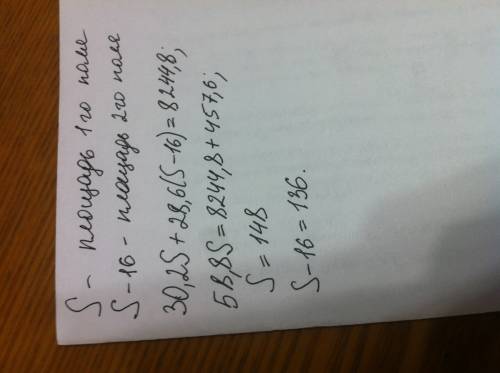 S - площадь 1го поля
S-16 - площадь 2го поля
30,2S+28,6(S-16)=8244,8;
58,8S=8244,8+457,6;
S=148
S-16=136.